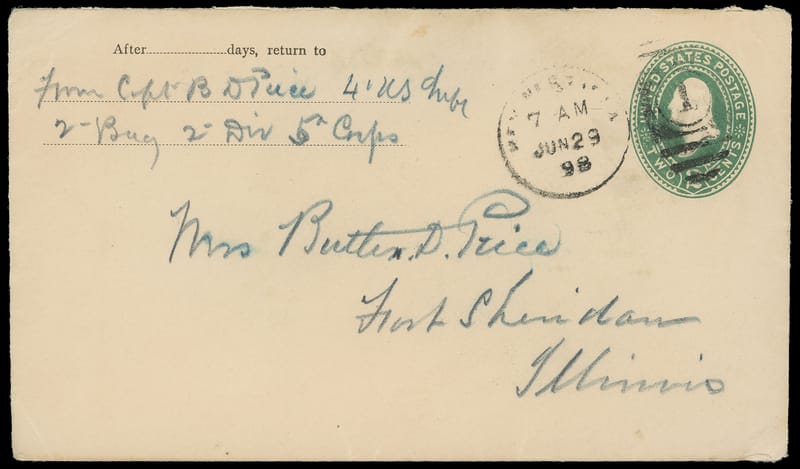 After..............days, return to
From Capt B D Price 4" US Infy
2- Brig 2- Div 5th Corps
7 AM
JUN 29
98
UNITED STATES POSTAGE
1
TWO CENTS
Mrs Butler. D. Price
Fort Sheridan
Illinois